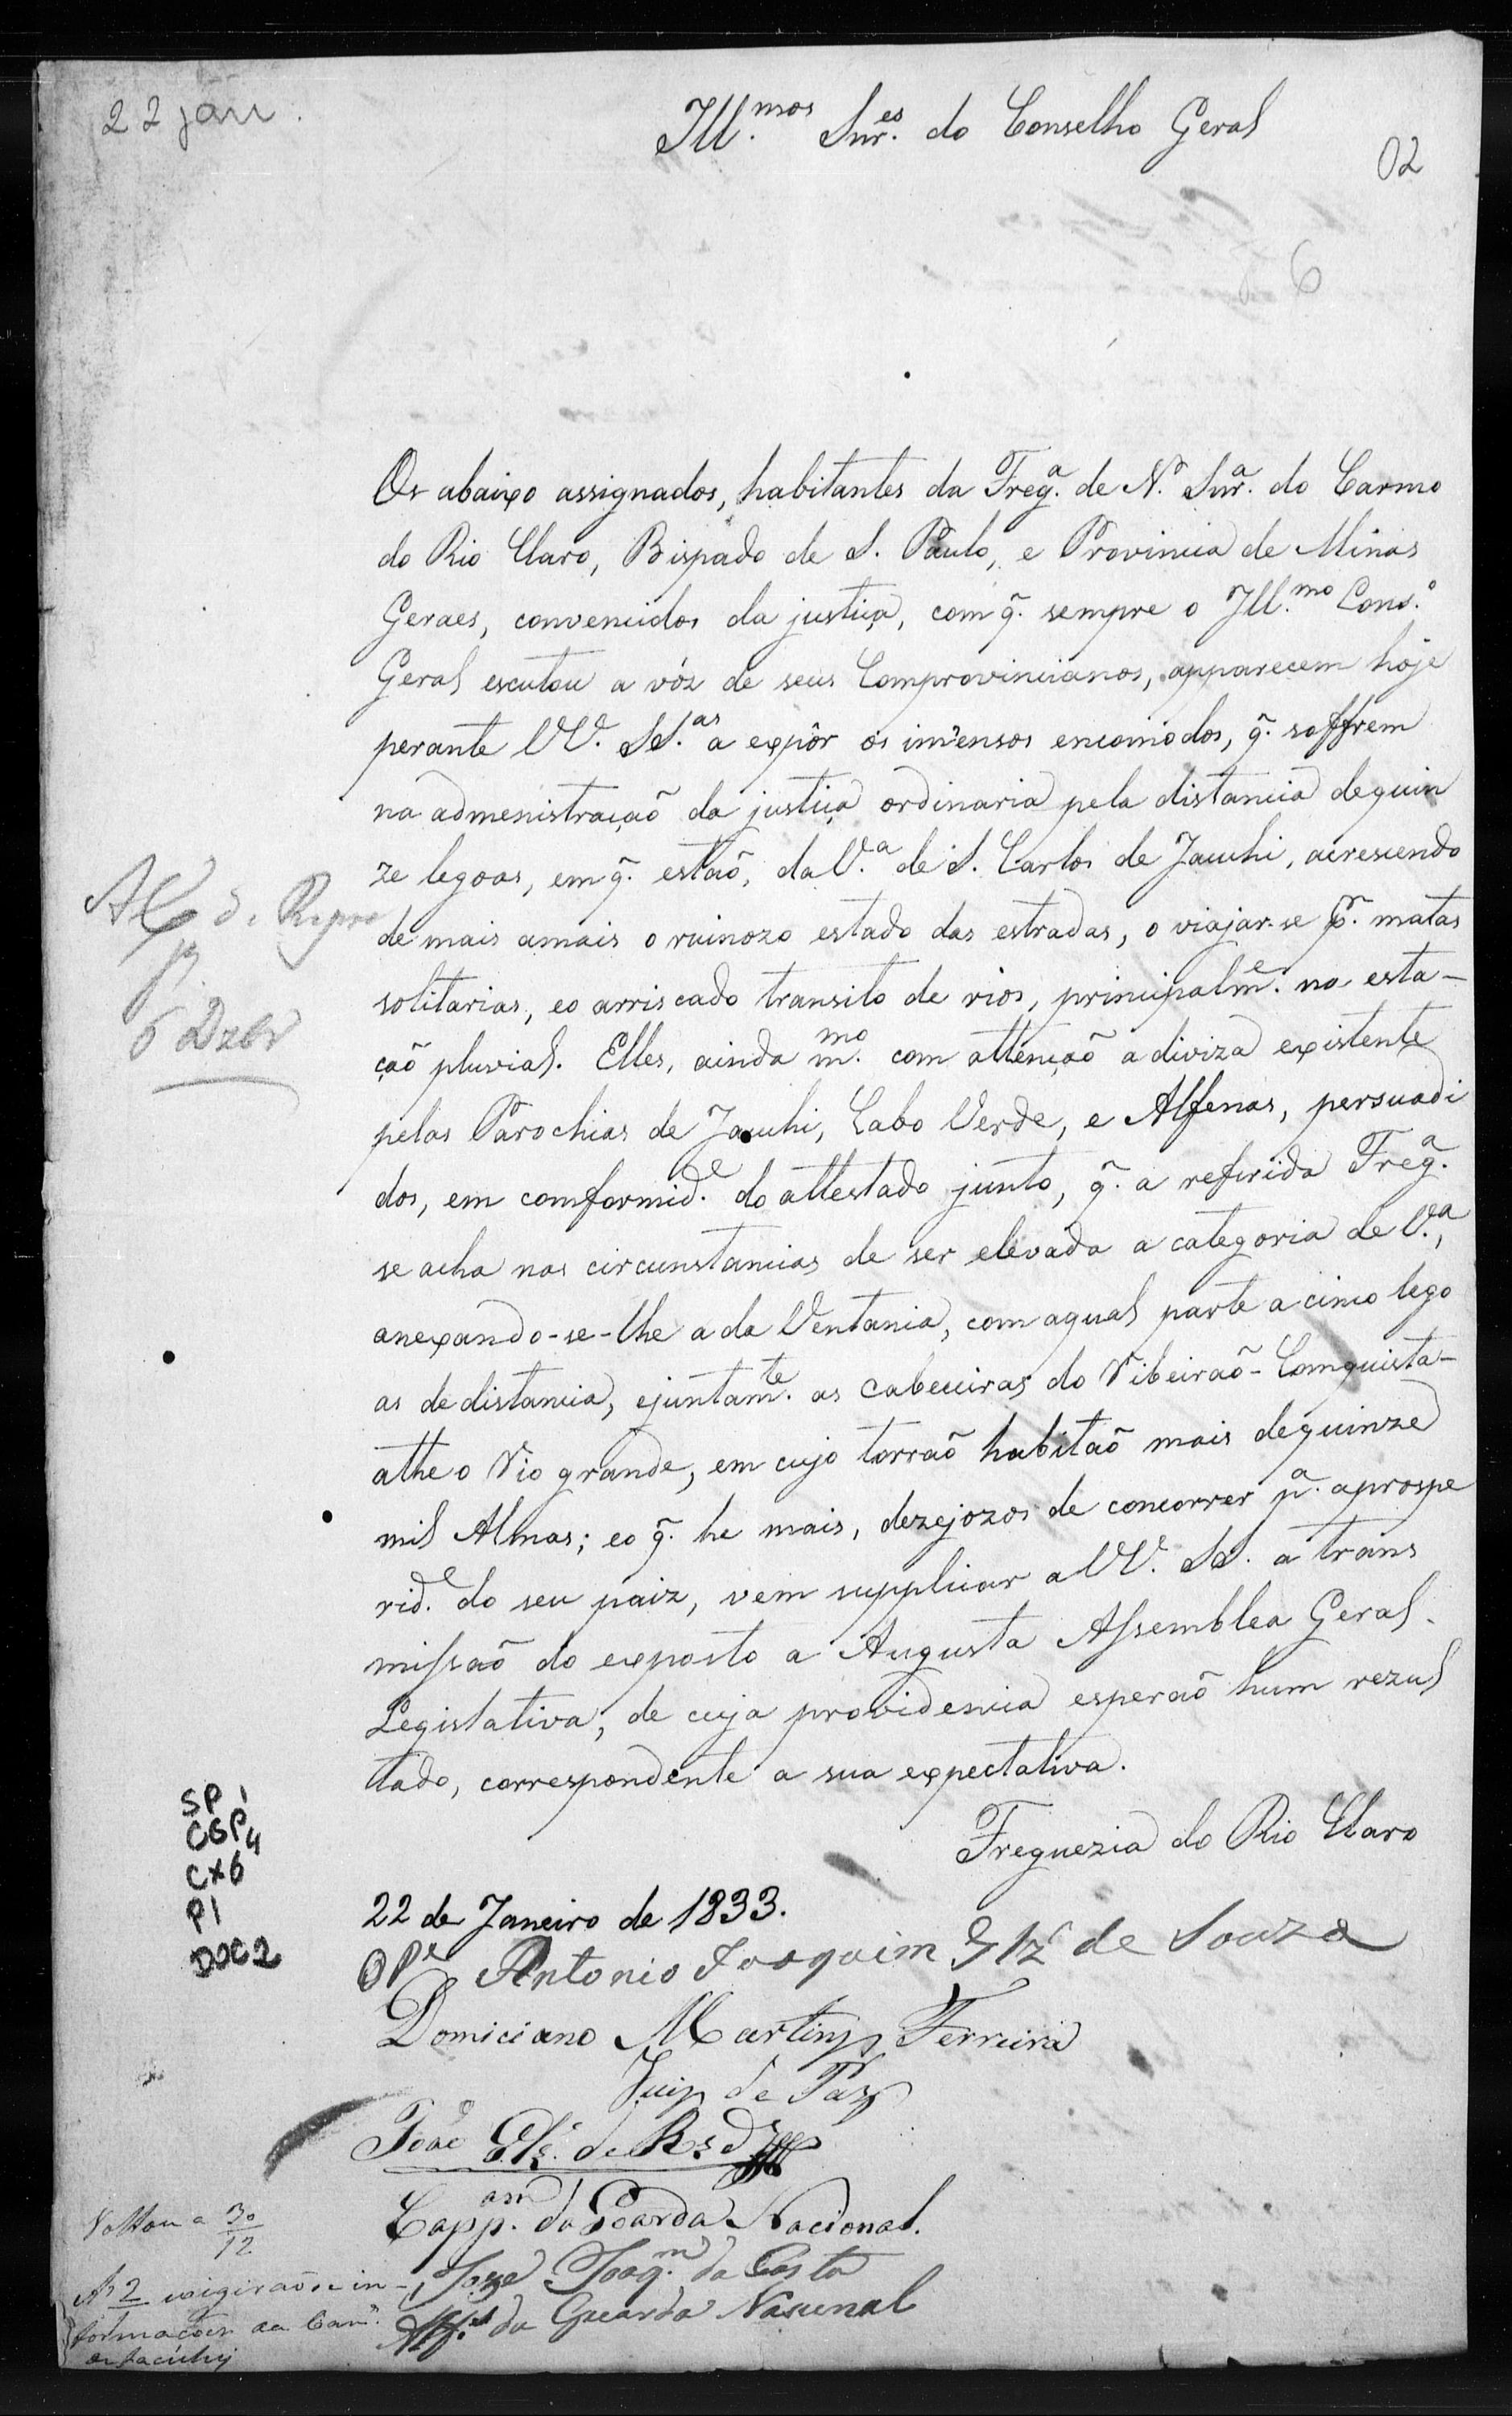 22 jan.
Ill.mos Snr.es do Conselho Geral
02
6
Os abaixo assignados, habitantes da Freg.a de N. Snr.a do Carmo
do Rio Claro, Bispado de S. Paulo, e Provincia de Minas
Geraes, convencidos da justiça, com q̃. sempre o Ill.mo Cons.o
Geral escutou a vóz de seus Comprovincianos, apparecem hoje
perante VV. SS.as a expôr os imensos encomodos, q̃. soffrem
na admenistração da justiça ordinaria pela distancia dequin
ze legoas, em q̃. estão, da V.a de S. Carlos de Jacuhi, acrescendo
de mais amais o ruinozo estado das estradas, o viajar-se p.r matas
solitarias, eo arriscado transito de rios, principalm.e na esta-
ção pluvial. Elles, ainda m.mo com attenção a diviza existente
pelas Parochias de Jacuhi, Cabo Verde, e Alfenas, persuadi
dos, em comformid.e do attestado junto, q̃. a referida Freg.a
se acha nas circunstancias de ser elevada a categoria de V.a,
anexando-se-lhe a da Ventania, comaqual parte a cinco lego
as de distancia, ejuntam.te as cabeceiras do Ribeirão-Comquista-
athe o Rio grande, em cujo torrão habitão mais dequinze
mil Almas; eo q̃. he mais, dezejozos de concorrer p.a aprospe
rid.e do seu paiz, vem supplicar a VV. SS. a trans
missão do exposto a Augusta Assemblea Geral
Legislativa, de cuja providencia esperão hum rezul
tado, correspondente a sua expectativa.
Freguezia do Rio Claro
22 de Janeiro de 1833.
O P.e Antonio Joaquim de Souza
Domiciano Martins Ferreira
Juiz de Paz
João
Capp.am da Goarda Nacional.
Joze Joaq.m da Costa
Alf.es da Guarda Nacional
6 Dzbr
SP 1
CGP4
CX6
P1
DOC2
Voltou a 30/12
Nº 2 exigirão-se in-
formações da Cam.a
de Jacuhy